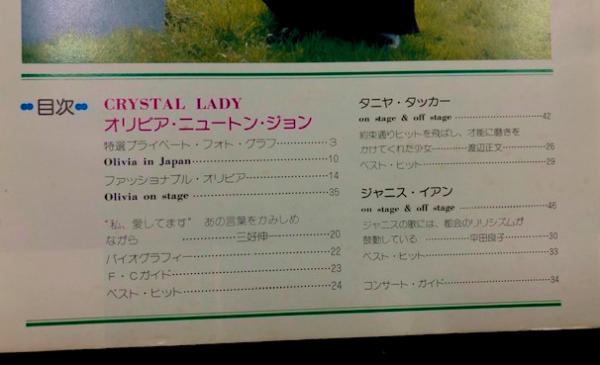 目次
CRYSTAL LADY
オリビア・ニュートン・ジョン
特選プライベート・フォト・グラフ…………3
Olivia in Japan…………10
ファッショナブル・オリビア…………14
Olivia on stage…………35
“私、愛してます” あの言葉をかみしめ
ながら …………三好伸一…………20
バイオグラフィー…………22
F・Cガイド…………23
ベスト・ヒット…………24
タニヤ・タッカー
on stage & off stage…………42
約束通りヒットを飛ばし、才能に磨きを
かけてくれた少女…………渡辺正文…………26
ベスト・ヒット…………29
ジャニス・イアン
on stage & off stage…………46
ジャニスの歌には、都会のリリシズムが
鼓動している …………平田良子…………30
ベスト・ヒット…………33
コンサート・ガイド…………34